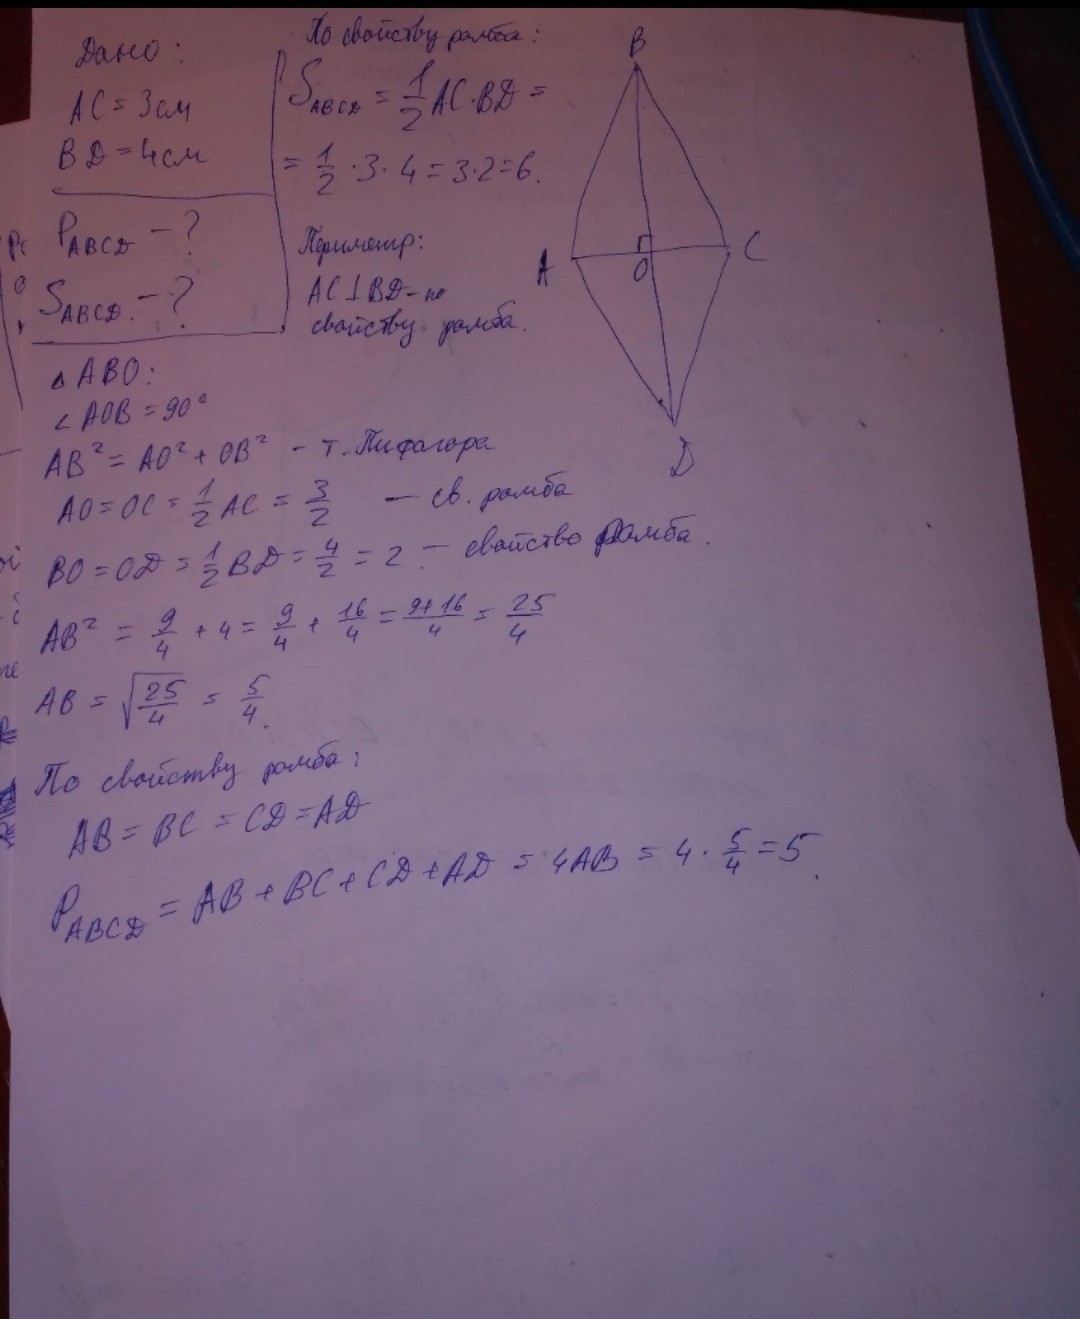 Дано:
AC = 3см
BD = 4см
P_ABCD - ?
S_ABCD. - ?
По свойству ромба:
S_ABCD = 1/2 AC·BD =
= 1/2 · 3 · 4 = 3·2 = 6.
Периметр:
AC ⊥ BD - по
свойству ромба.
B
A
C
O
D
△ ABO:
∠ AOB = 90°
AB² = AO² + OB² - т. Пифагора
AO = OC = 1/2 AC = 3/2 - св. ромба
BO = OD = 1/2 BD = 4/2 = 2 - свойство ромба.
AB² = 9/4 + 4 = 9/4 + 16/4 = 9+16/4 = 25/4
AB = √25/4 = 5/4.
По свойству ромба:
AB = BC = CD = AD
P_ABCD = AB + BC + CD + AD = 4AB = 4 · 5/4 = 5.